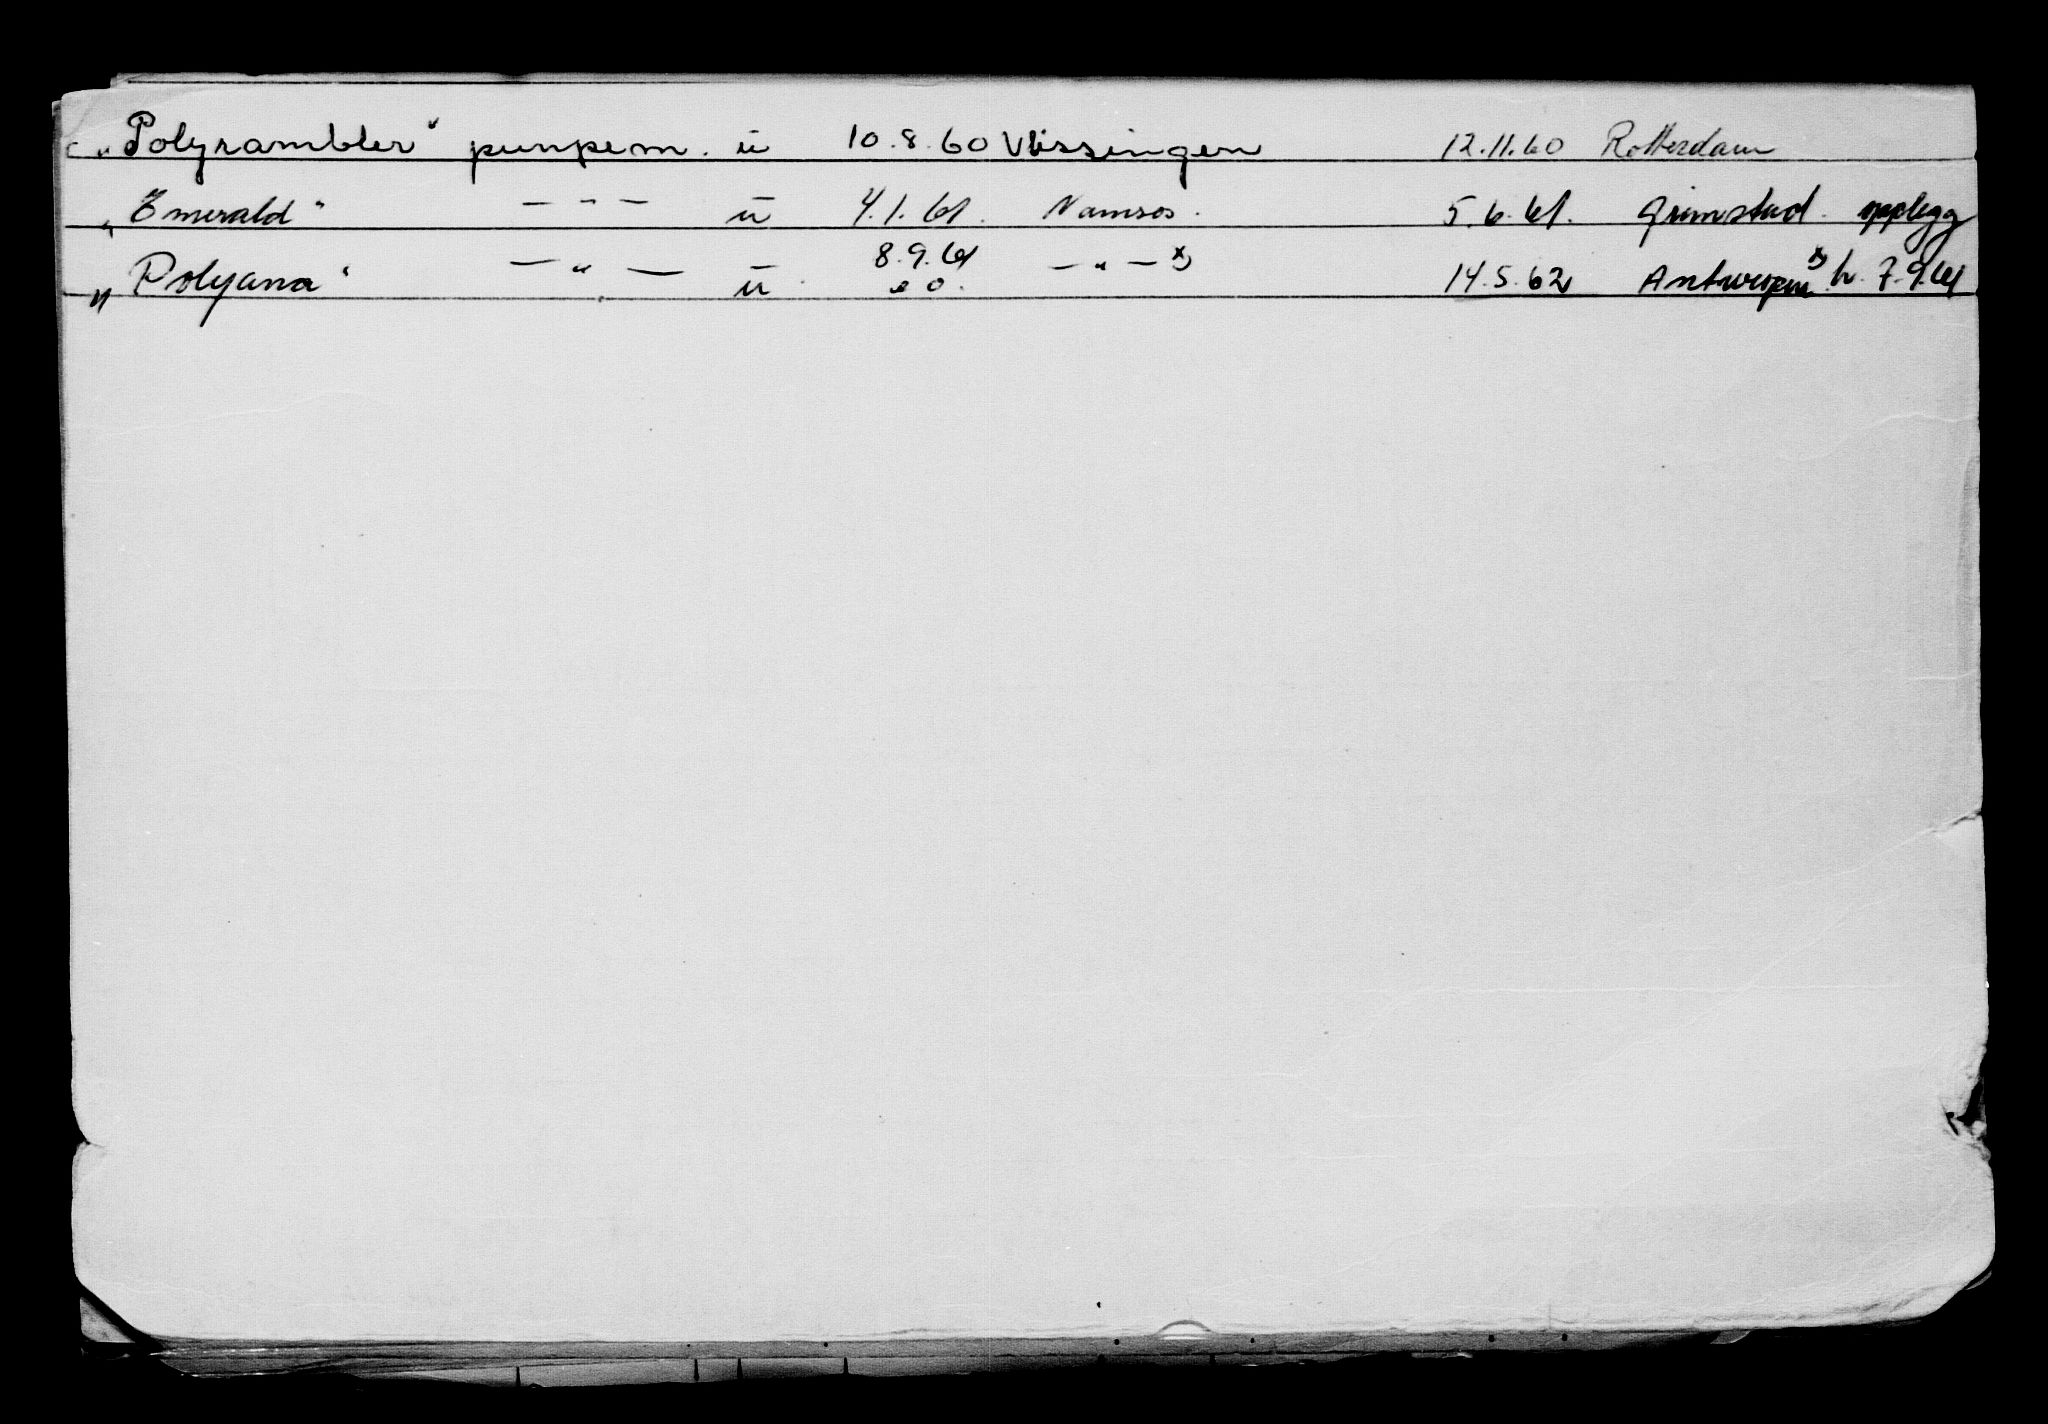 „Polyrambler" punpem. ū 10.8.60 Vlissingen 12.11.60 Rotterdam
„Emerald" — " — ū 4.1.61. Namsos. 5.6.61. Grimstad. opplegg
„Polyana" — " — ū 8.9.61 — " — x) 14.5.62 Antwerpen x) h. 7.9.61